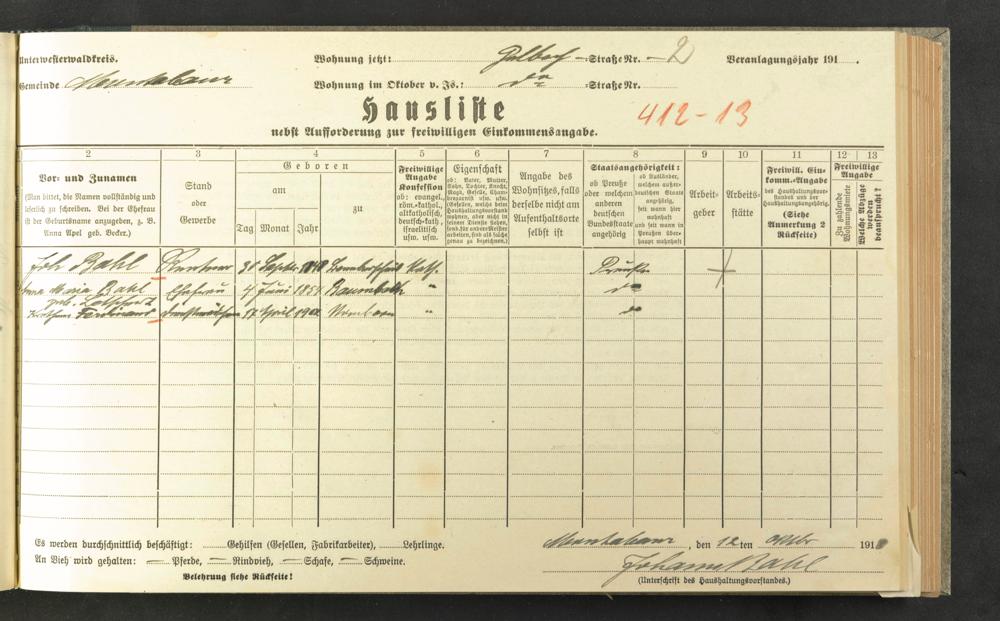 Unterwesterwaldkreis. Wohnung jetzt: Gelbach -Straße Nr. 2 Veranlagungsjahr 191 .
Gemeinde Montabaur Wohnung im Oktober v. Js.: do -Straße Nr.
Hausliste 412-13
nebst Aufforderung zur freiwilligen Einkommensangabe.
2 3 4 5 6 7 8 9 10 11 12 13
Vor- und Zunamen
(Man bittet, die Namen vollständig und
leserlich zu schreiben. Bei der Ehefrau
ist der Geburtsname anzugeben, z. B.
Anna Apel geb. Becker.)
Stand
oder
Gewerbe
Geboren
am zu
Tag Monat Jahr
Freiwillige
Angabe
Konfession
ob: evangel.,
röm.-kathol.,
altkatholisch,
deutsch-kath.,
israelitisch
usw. usw.
Eigenschaft
ob: Vater, Mutter,
Sohn, Tochter, Knecht,
Magd, Geselle,
usw.
Angabe des
Wohnsitzes, falls
derselbe nicht am
Aufenthaltsorte
selbst ist
Staatsangehörigkeit:
ob Preuße
oder welchem
anderen
deutschen
Bundesstaate
angehörig
ob Ausländer,
welchem außer-
deutschen Staat
angehörig,
seit wann hier
wohnhaft
und seit wann in
Preußen über-
haupt wohnhaft
Arbeit-
geber
Arbeits-
stätte
Freiwill. Ein-
komm.-Angabe
des Haushaltungsvor-
standes und der
Haushaltungsangehörig.
(Siehe
Anmerkung 2
Rückseite)
Freiwillige
Angabe
Zu zahlende
Wohnungsmiete
Welche Abzüge
werden
beansprucht?
Joh Bahl Rentner 31 Kath. Preuße
Anna Maria Bahl Ehefrau 4 Juni 1854 Baumbach " do
geb.
Ferdinand 17 April " do
Es werden durchschnittlich beschäftigt: Gehilfen (Gesellen, Fabrikarbeiter), Lehrlinge.
Montabaur, den 12 ten Oktbr 191
An Vieh wird gehalten: — Pferde, — Rindvieh, — Schafe, — Schweine.
Johann Bahl
Belehrung siehe Rückseite!
(Unterschrift des Haushaltungsvorstandes.)